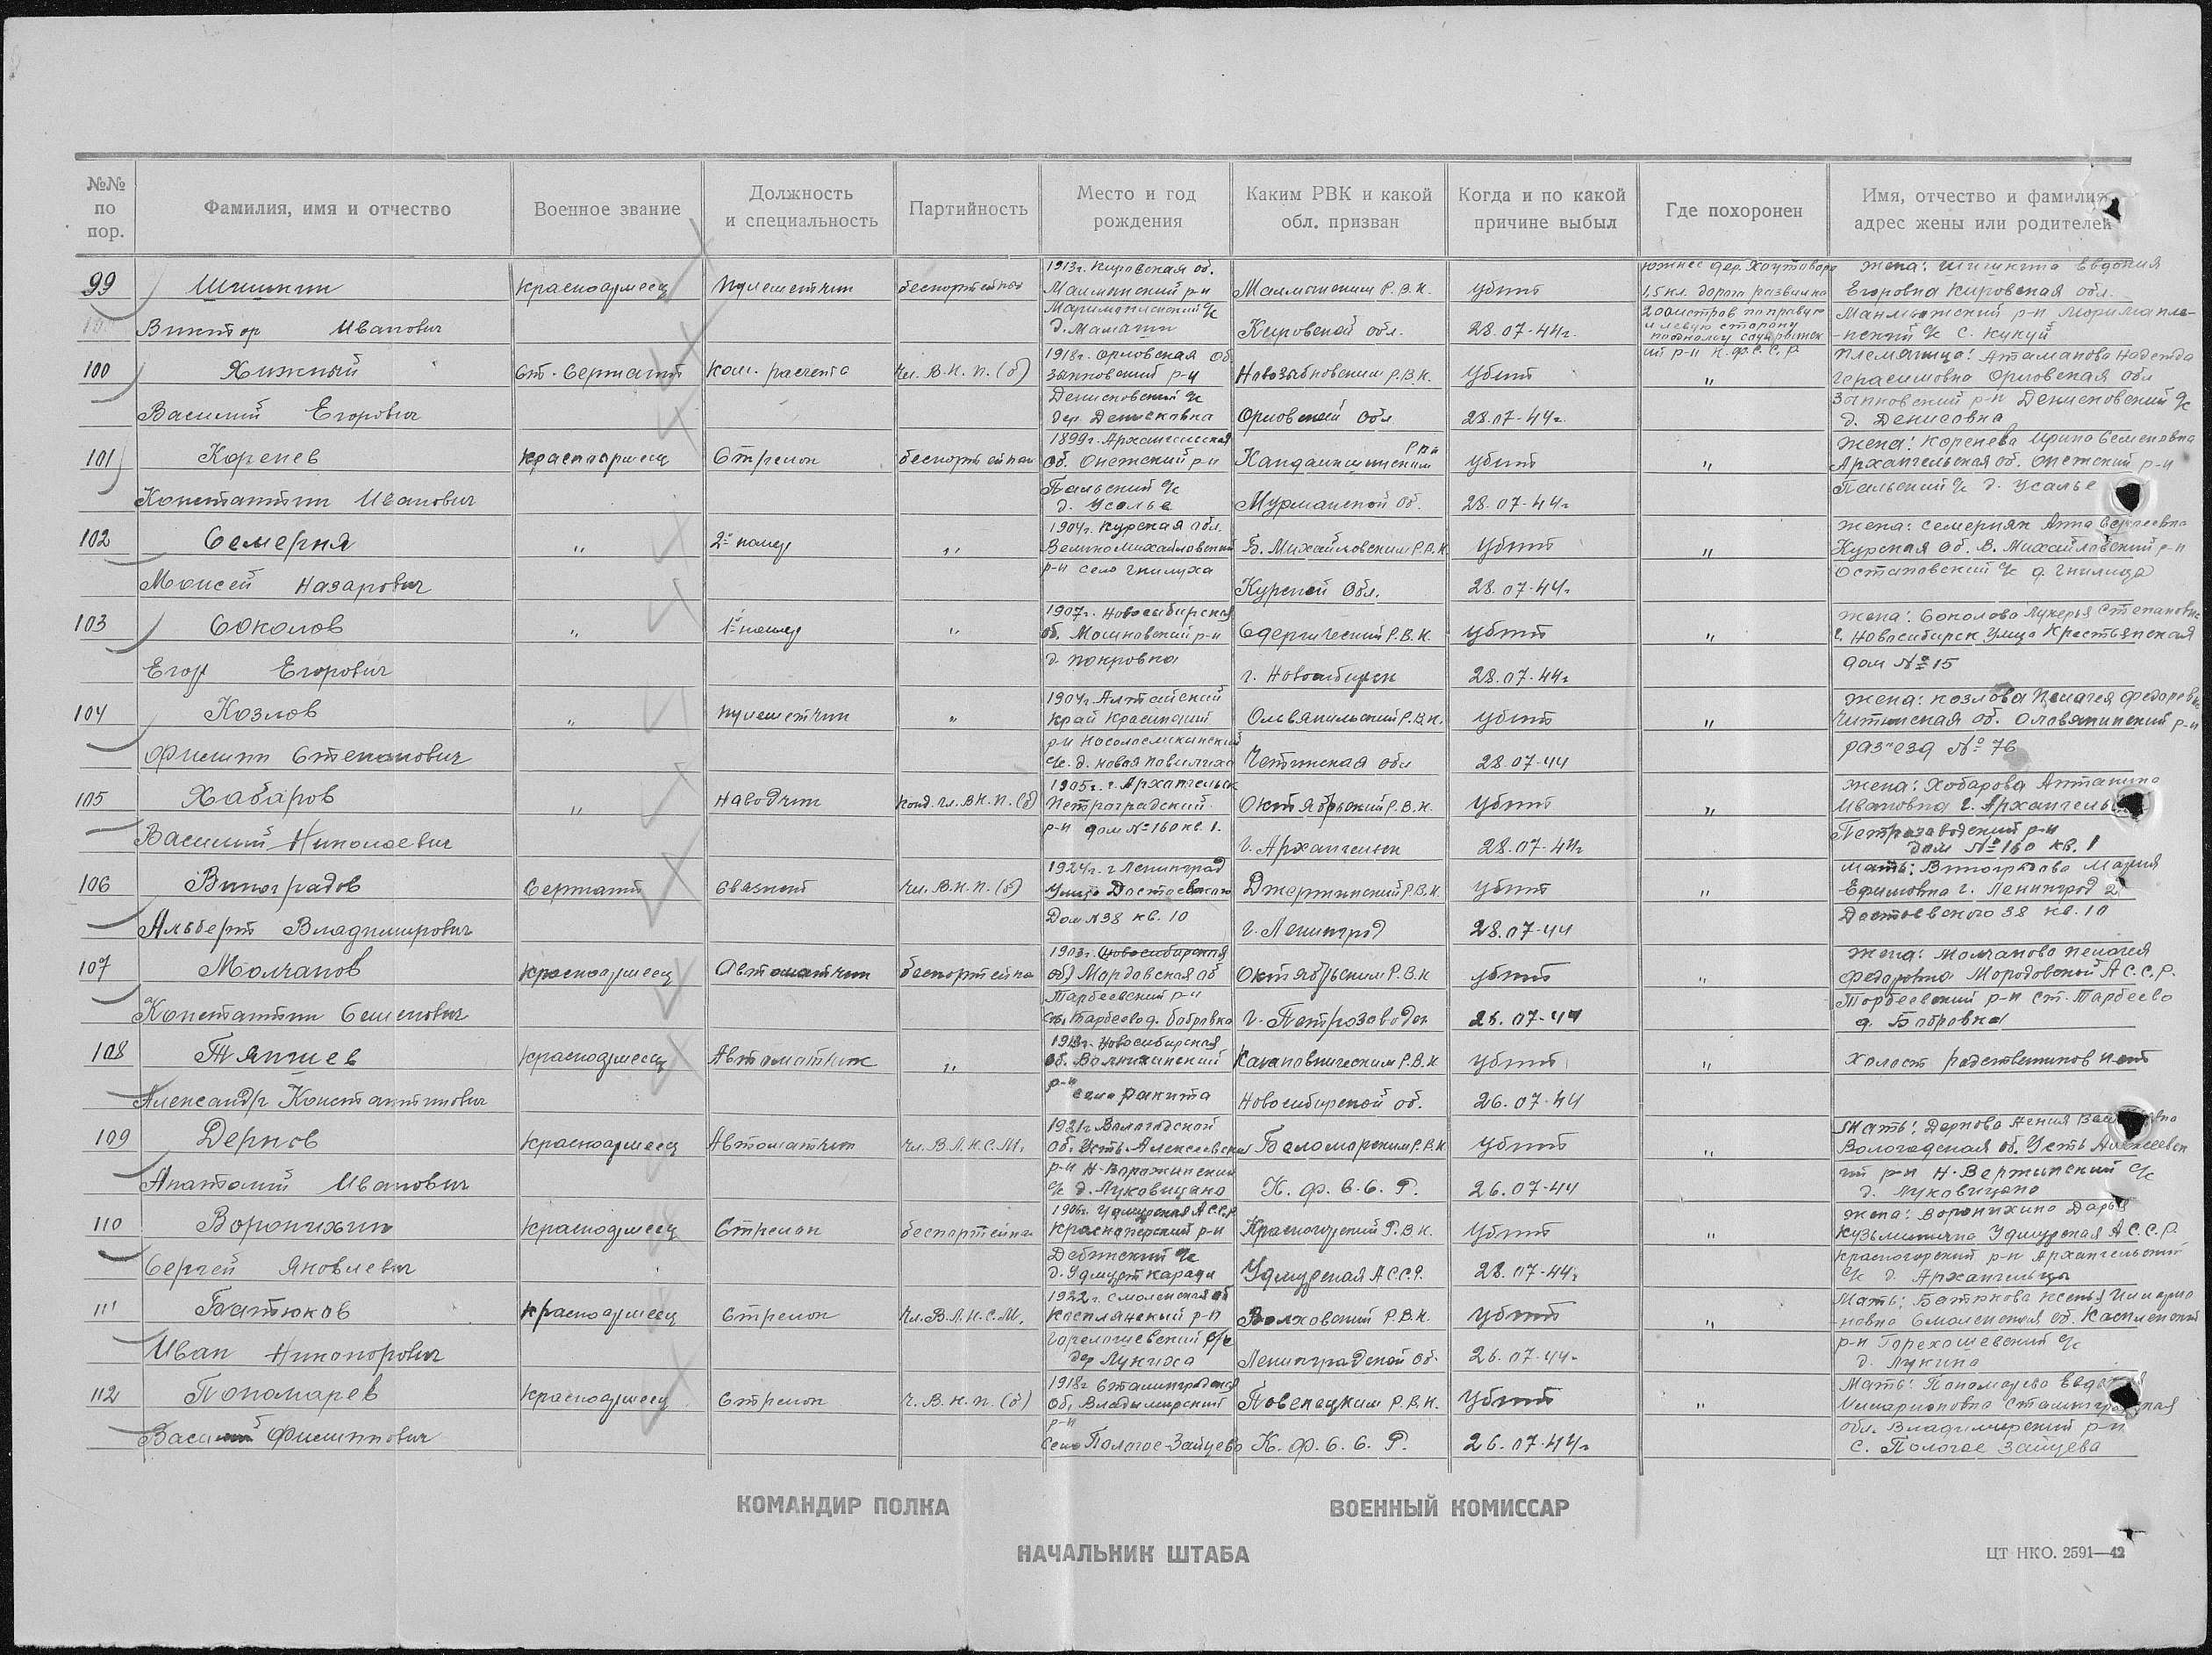 №№ по пор. Фамилия, имя и отчество Военное звание Должность и специальность Партийность Место и год рождения Каким РВК и какой обл. призван Когда и по какой причине выбыл Где похоронен Имя, отчество и фамилия, адрес жены или родителей
99 Шишкин Красноармеец пулеметчик беспартейный 1913г. Кировская об. Малмыжский р-н Малмыжским Р.В.К. убит южнее дер. Хаутоваара 1,5 кл. дорога развилка жена: Шишкина Евдокия Егоровна Кировская обл.
Виктор Иванович с/с д. Мамашы Кировской обл. 28.07-44г. 200 метров по правую и левую сторону р-н К.Ф.С.С.Р. р-н с/с с. Кукуй
100 Хижный Ст. Сержант Ком. расчета Чл. В.К.П.(б) 1918г. Орловская Об. р-н Новозыбковским Р.В.К. Убит " племяница: Атаманова Надежда Герасимовна Орловская обл
Василий Егорович с/с дер. Денисковка Орловской Обл 28.07-44г. р-н Денисковский с/с д. Денисовка
101 Коренев Красноармеец Стрелок беспартейный 1899г. Архангельская об. Онежский р-н Кандалакшским Рвк убит " жена: Коренева Ирина Семеновна Архангельская об. Онежский р-н
Константин Иванович с/с д. Усолье Мурманской Об. 28.07-44г. с/с д. Усолье
102 Семерня " 2й номер " 1904г. Курская обл. Великомихайловский Б. Михайловским Р.В.К. Убит " жена: Семерняк Анна Сергеевна Курская об. В. Михайловский р-н
Моисей Назарович р-н село Гнилуха Курской Обл. 28.07-44г. Остаповский с/с д. Гнилица
103 Соколов " 1й номер " 1907г. Новосибирская об. Мошковский р-н Р.В.К. убит " жена: Соколова Лукерья Степановна г. Новосибирск улица Крестьянская
Егор Егорович д. Покровка г. Новосибирск 28.07-44г дом № 15
104 Козлов " пулеметчик " 1904г. Алтайский край Краснский Р.В.К. убит " жена: Козлова Пелагея Федоровна Читинская об. Оловянинский р-н
Филипп Степанович р-н с/с. д. Новая Четинская обл 28.07-44 разъезд № 76
105 Хабаров " Наводчик Канд. чл. ВКП.(б) 1905г. г. Архангельск Петроградский Октябрьский Р.В.К. Убит " жена: Хобарова Антанина Ивановна г. Архангельск
Василий Николаевич р-н дом № 160 кв. 1. г. Архангельск 28.07-44г Петрозаводский р-н дом № 160 кв. 1
106 Виноградов Сержант связной Чл. В.К.П.(б) 1924г. г Ленинград Улица Достоевского Джержинский Р.В.К. Убит " мать: Виноградова Мария Ефимовна г. Ленинград
Альберт Владимирович Дом № 38 кв. 10 г. Ленинград 28.07-44 Достоевского 38 кв. 10
107 Молчанов Красноармеец Автоматчик беспортейна 1903г. Новосибирская об) Мордавская об Октябрьским Р.В.К убит " жена: Молчанова Пелагея Федоровна Мородовской А.С.С.Р.
Константин Семенович Тарбеевский р-н Тарбеево д. Бобровка г. Петрозаводск 28.07-44 Торбеевский р-н ст. Тарбеево д. Бобровка
108 Тяпчиев Красноармеец Автоматчик " Новосибирская об. Волчихинский Кагановическим Р.В.К. убит " Холост родственников нет
Александр Константинович р-н село Ракита Новосибирской об. 26.07-44
109 Дернов Красноармеец Автоматчик Чл. В.Л.К.С.М. 1921г Вологодской Об. Усть Алексеевский Беломорским Р.В.К Убит " Мать: Дернова Вологодская об. Усть Алексеевск
Анатолий Иванович р-н с/с д. Луковицыно К.Ф.С.С.Р. 26.07-44 ий р-н с/с д. Луковицыно
110 Воронихин Красноармеец Стрелок беспартейна 1906г. Удмурская АССР Красногорский р-н Красногорский Р.В.К. Убит " жена: Воронихина Дарья Кузьминична Удмурская А.С.С.Р.
Сергей Яковлевич Дебинский с/с д. Удмурт Караул Удмурская А.С.С.Р. 28.07-44г Красногорский р-н Архангельский с/с д. Архангельцы
111 Батюков Красноармеец Стрелок Чл. В.Л.К.С.М. 1922г. Смоленская об Касплянский р-н Волховский Р.В.К. Убит " Мать: Батюкова Ксенья Смоленская об. Касплянский
Иван Никонорович с/с дер Лукина Ленинградской об. 26.07-44г р-н с/с д. Лукина
112 Пономарев Красноармеец Стрелок Ч. В.К.П.(б) 1918г Сталинградская об, Владимирский Повенецким Р.В.К. Убит " Мать: Пономарева Илларионовна Сталинградская
Василий Филиппович р-н село Пологое-Займево К.Ф.С.С.Р. 26.07-44г обл. Владимирский р-н с. Пологое Займева
КОМАНДИР ПОЛКА ВОЕННЫЙ КОМИССАР
НАЧАЛЬНИК ШТАБА
ЦТ НКО. 2591—42